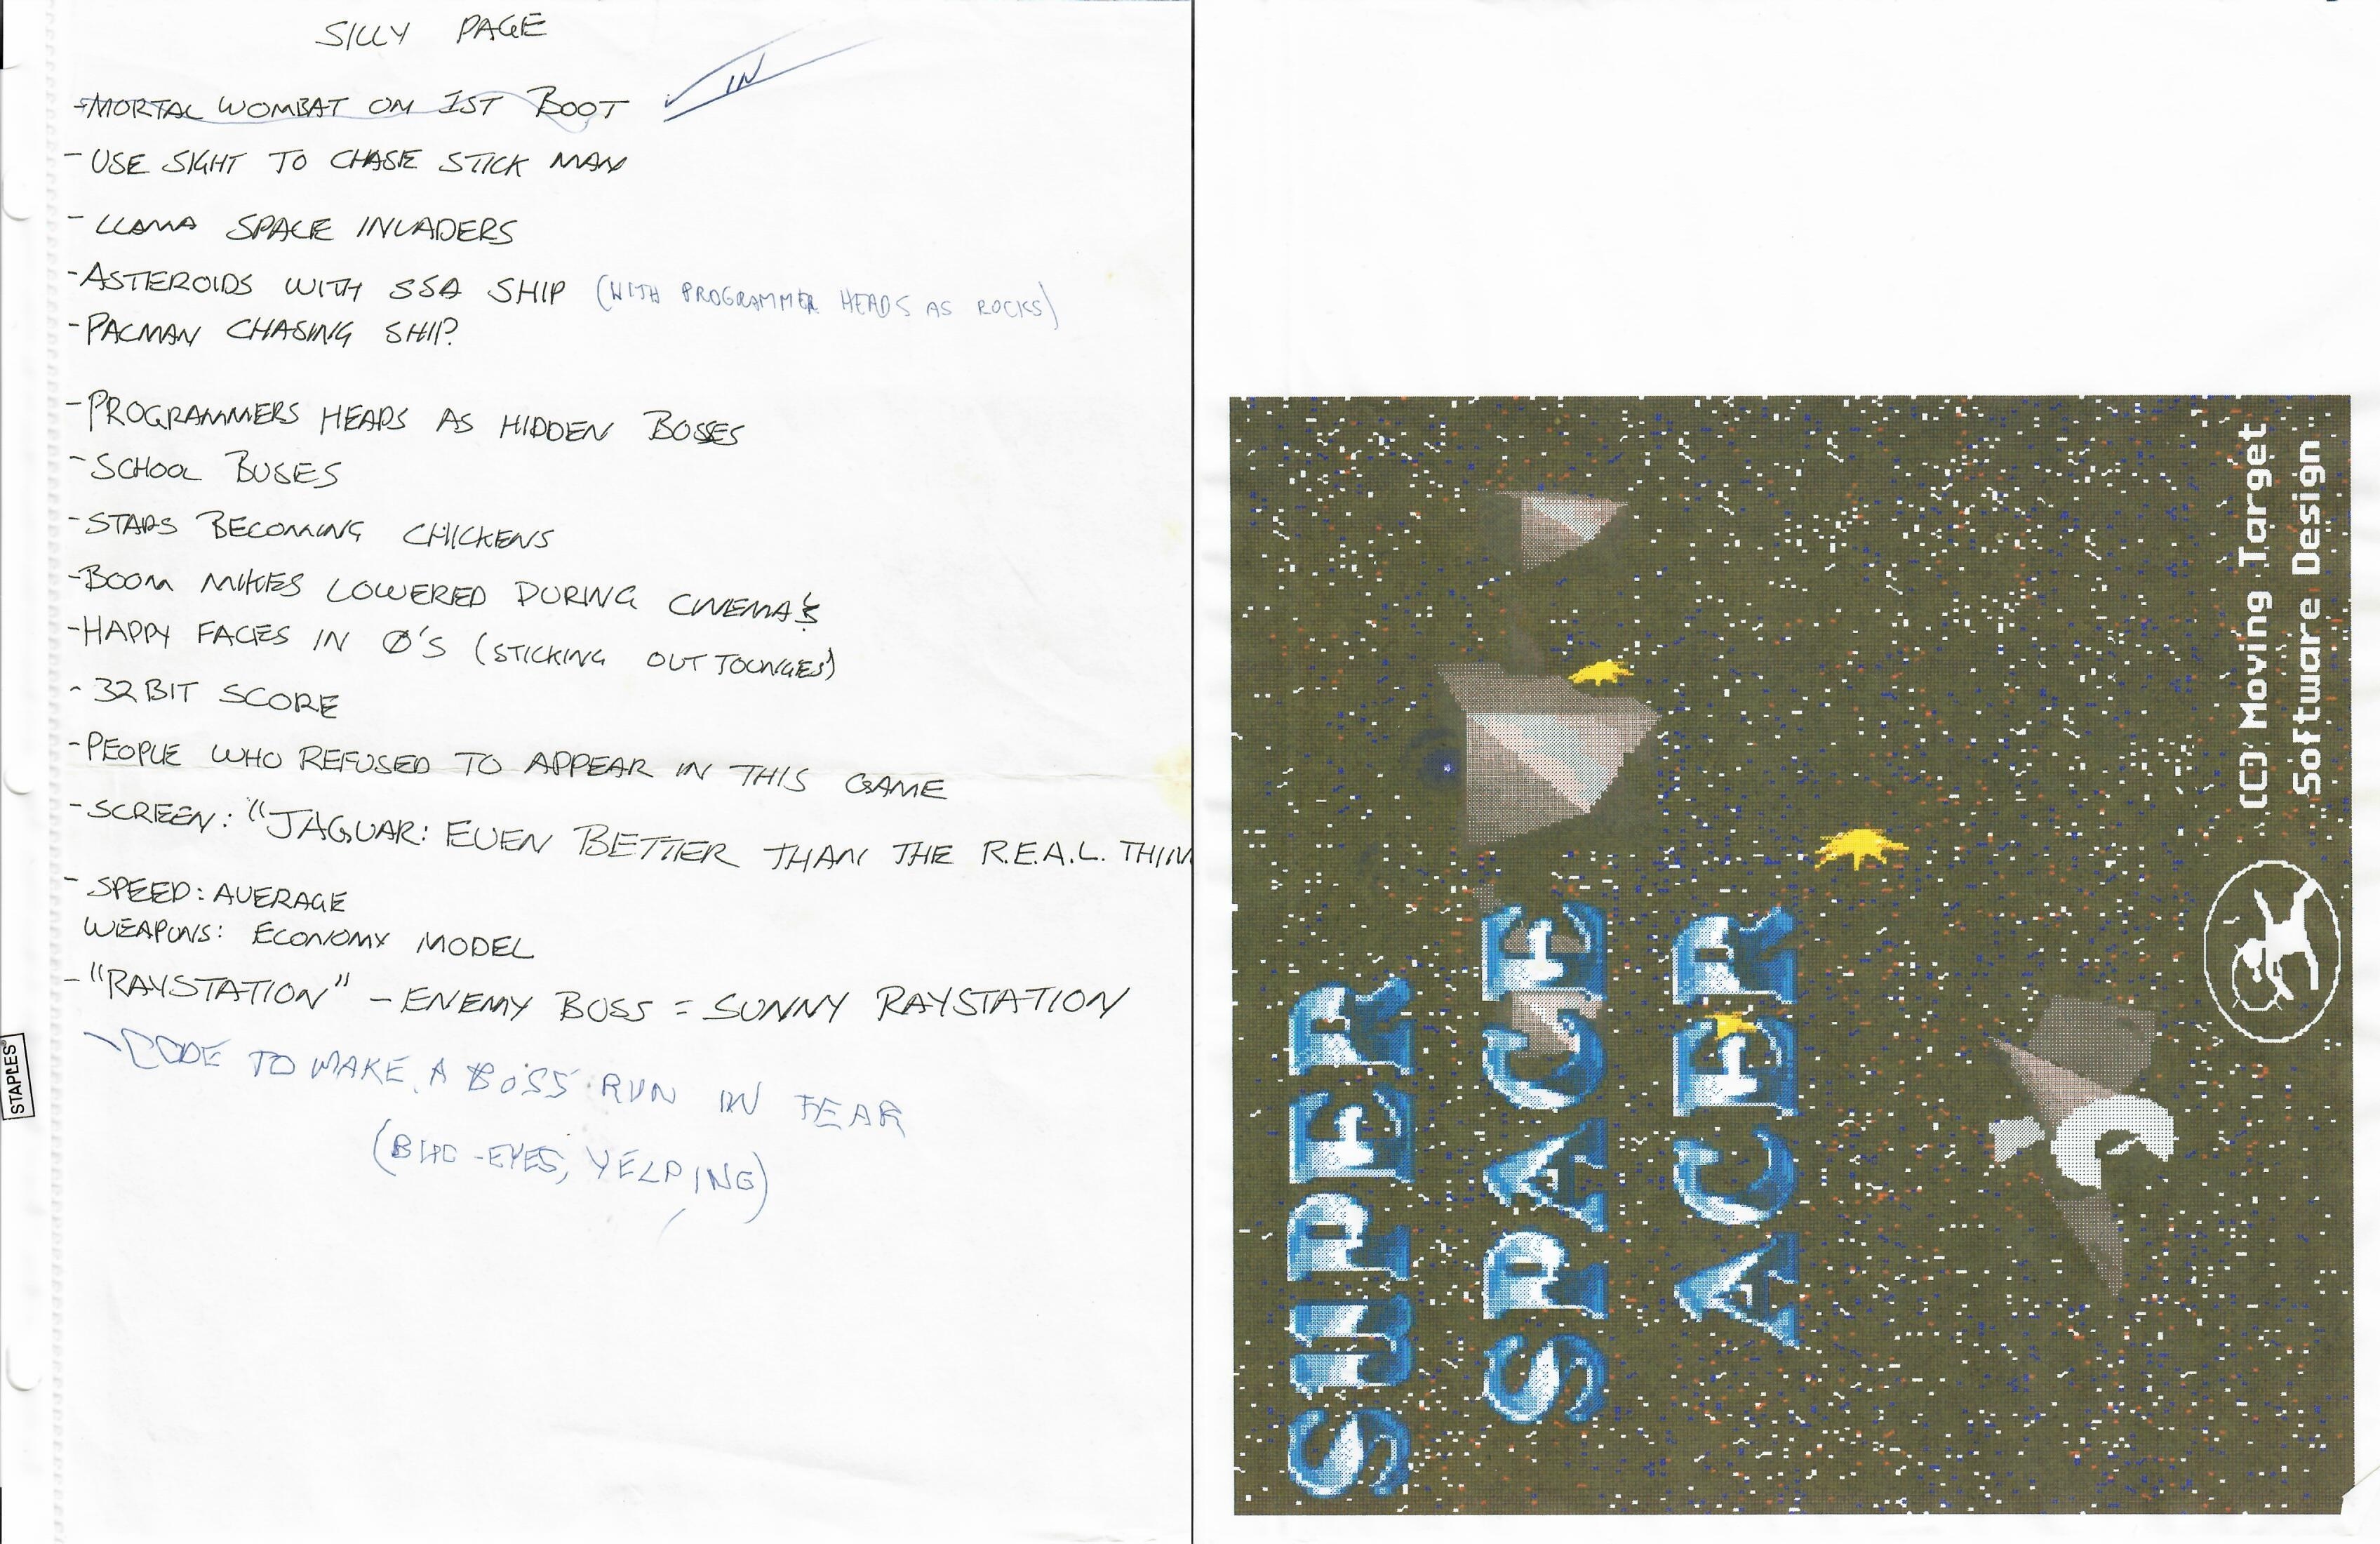 SILLY PAGE
-MORTAL WOMBAT ON 1ST BOOT IN
-USE SIGHT TO CHASE STICK MAN
-LLAMA SPACE INVADERS
-ASTEROIDS WITH SSA SHIP (WITH PROGRAMMER HEADS AS ROCKS)
-PACMAN CHASING SHIP?
-PROGRAMMERS HEADS AS HIDDEN BOSSES
-SCHOOL BUSES
-STARS BECOMING CHICKENS
-BOOM MIKES LOWERED DURING CINEMA'S
-HAPPY FACES IN Ø'S (STICKING OUT TOUNGES)
-32 BIT SCORE
-PEOPLE WHO REFUSED TO APPEAR IN THIS GAME
-SCREEN: "JAGUAR: EVEN BETTER THAN THE R.E.A.L. THIN
-SPEED: AVERAGE
WEAPONS: ECONOMY MODEL
-"RAYSTATION" - ENEMY BOSS = SUNNY RAYSTATION
-CODE TO MAKE A BOSS RUN IN FEAR
(BUG-EYES, YELPING)
STAPLES
SUPER
SPACE
ACER
(C) Moving Target
Software Design